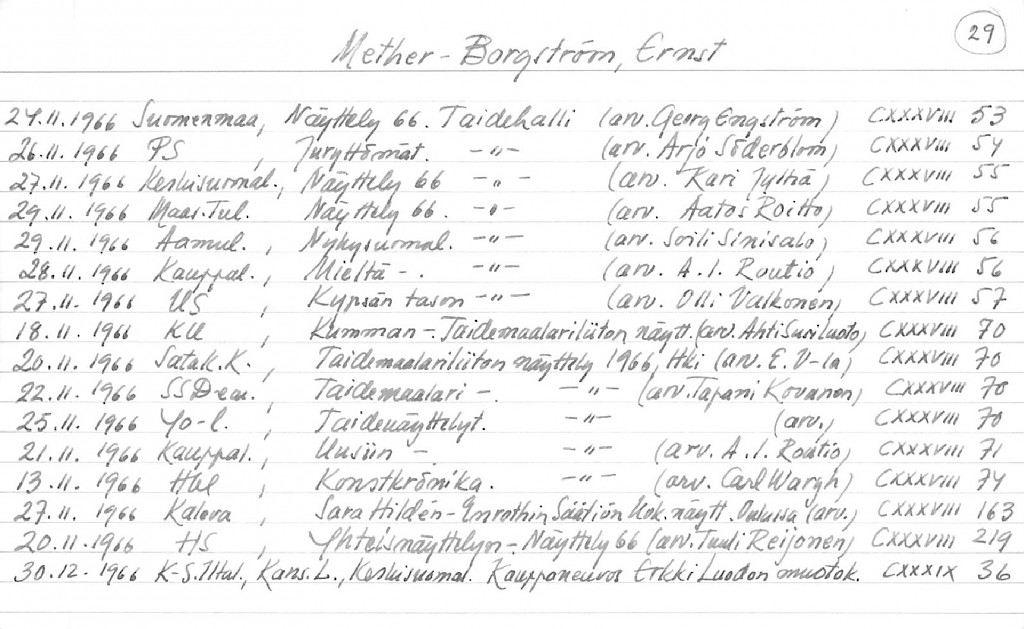 29
Mether-Borgström, Ernst
24.11.1966 Suomenmaa, Näyttely 66. Taidehalli (arv. Georg Engström) CXXXVIII 53
26.11.1966 PS , Juryttömät. -"- (arv. Arjo Söderblom) CXXXVIII 54
27.11.1966 Keskisuomal., Näyttely 66 -"- (arv. Kari Jylhä) CXXXVIII 55
29.11.1966 Maas.Tul. Näyttely 66. -"- (arv. Aatos Roitto) CXXXVIII 55
29.11.1966 Aamul. , Nykysuomal. -"- (arv. Soili Sinisalo) CXXXVIII 56
28.11.1966 Kauppal. , Mieltä - . -"- (arv. A.I. Routio) CXXXVIII 56
27.11.1966 US , Kypsän tason -"- (arv. Olli Valkonen) CXXXVIII 57
18.11.1966 KU , Kumman - Taidemaalariliiton näytt. (arv. Ahti Susiluoto) CXXXVIII 70
20.11.1966 Satak.K. , Taidemaalariliiton näyttely 1966, Hki (arv. E. V-la) CXXXVIII 70
22.11.1966 SSDem. , Taidemaalari - . -"- (arv. Tapani Kovanen) CXXXVIII 70
25.11.1966 Yo-l. , Taidenäyttelyt. -"- (arv.) CXXXVIII 70
21.11.1966 Kauppal. , Uusiin - . -"- (arv. A.I. Routio) CXXXVIII 71
13.11.1966 Hbl , Konstkrönika. -"- (arv. Carl Wargh) CXXXVIII 74
27.11.1966 Kaleva , Sara Hildén-Enrothin Säätiön kok. näytt. Oulussa (arv.) CXXXVIII 163
20.11.1966 HS , Yhteisnäyttelyn - Näyttely 66 (arv. Tuuli Reijonen) CXXXVIII 219
30.12.1966 K-S.Iltal., Kans.L., Keskisuomal. Kauppaneuvos Erkki Luodon muotok. CXXXIX 36